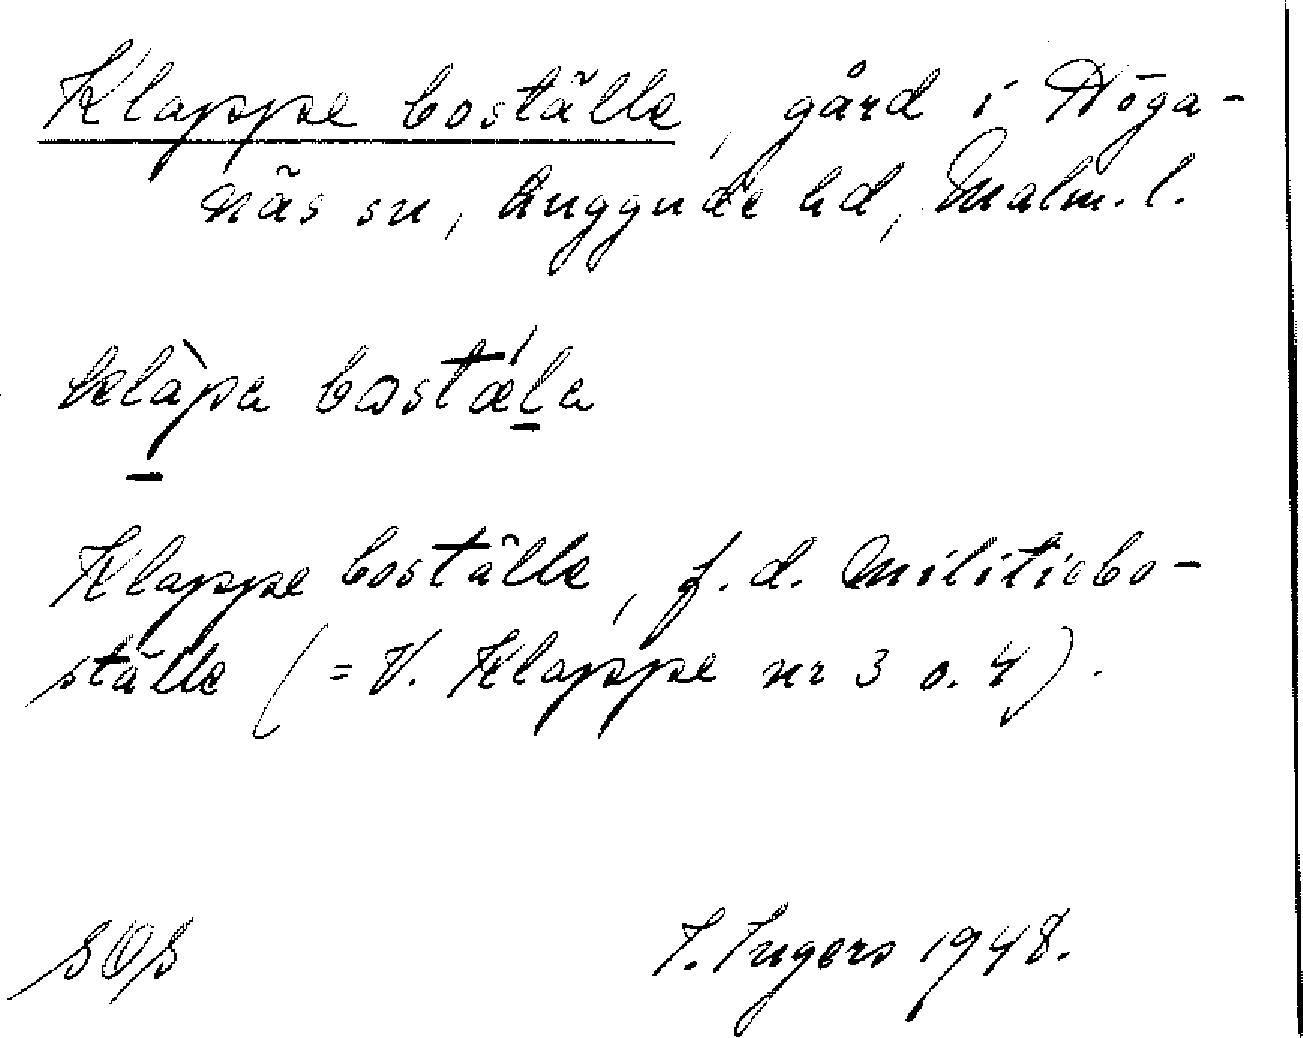 Klappe boställe, gård i Höga-
näs sn, Luggude hd, Malm. l.
Klappe boställe, f.d. militiebo-
ställe (= V. Klappe nr 3 o. 4).
SOS I. Ingers 1948.